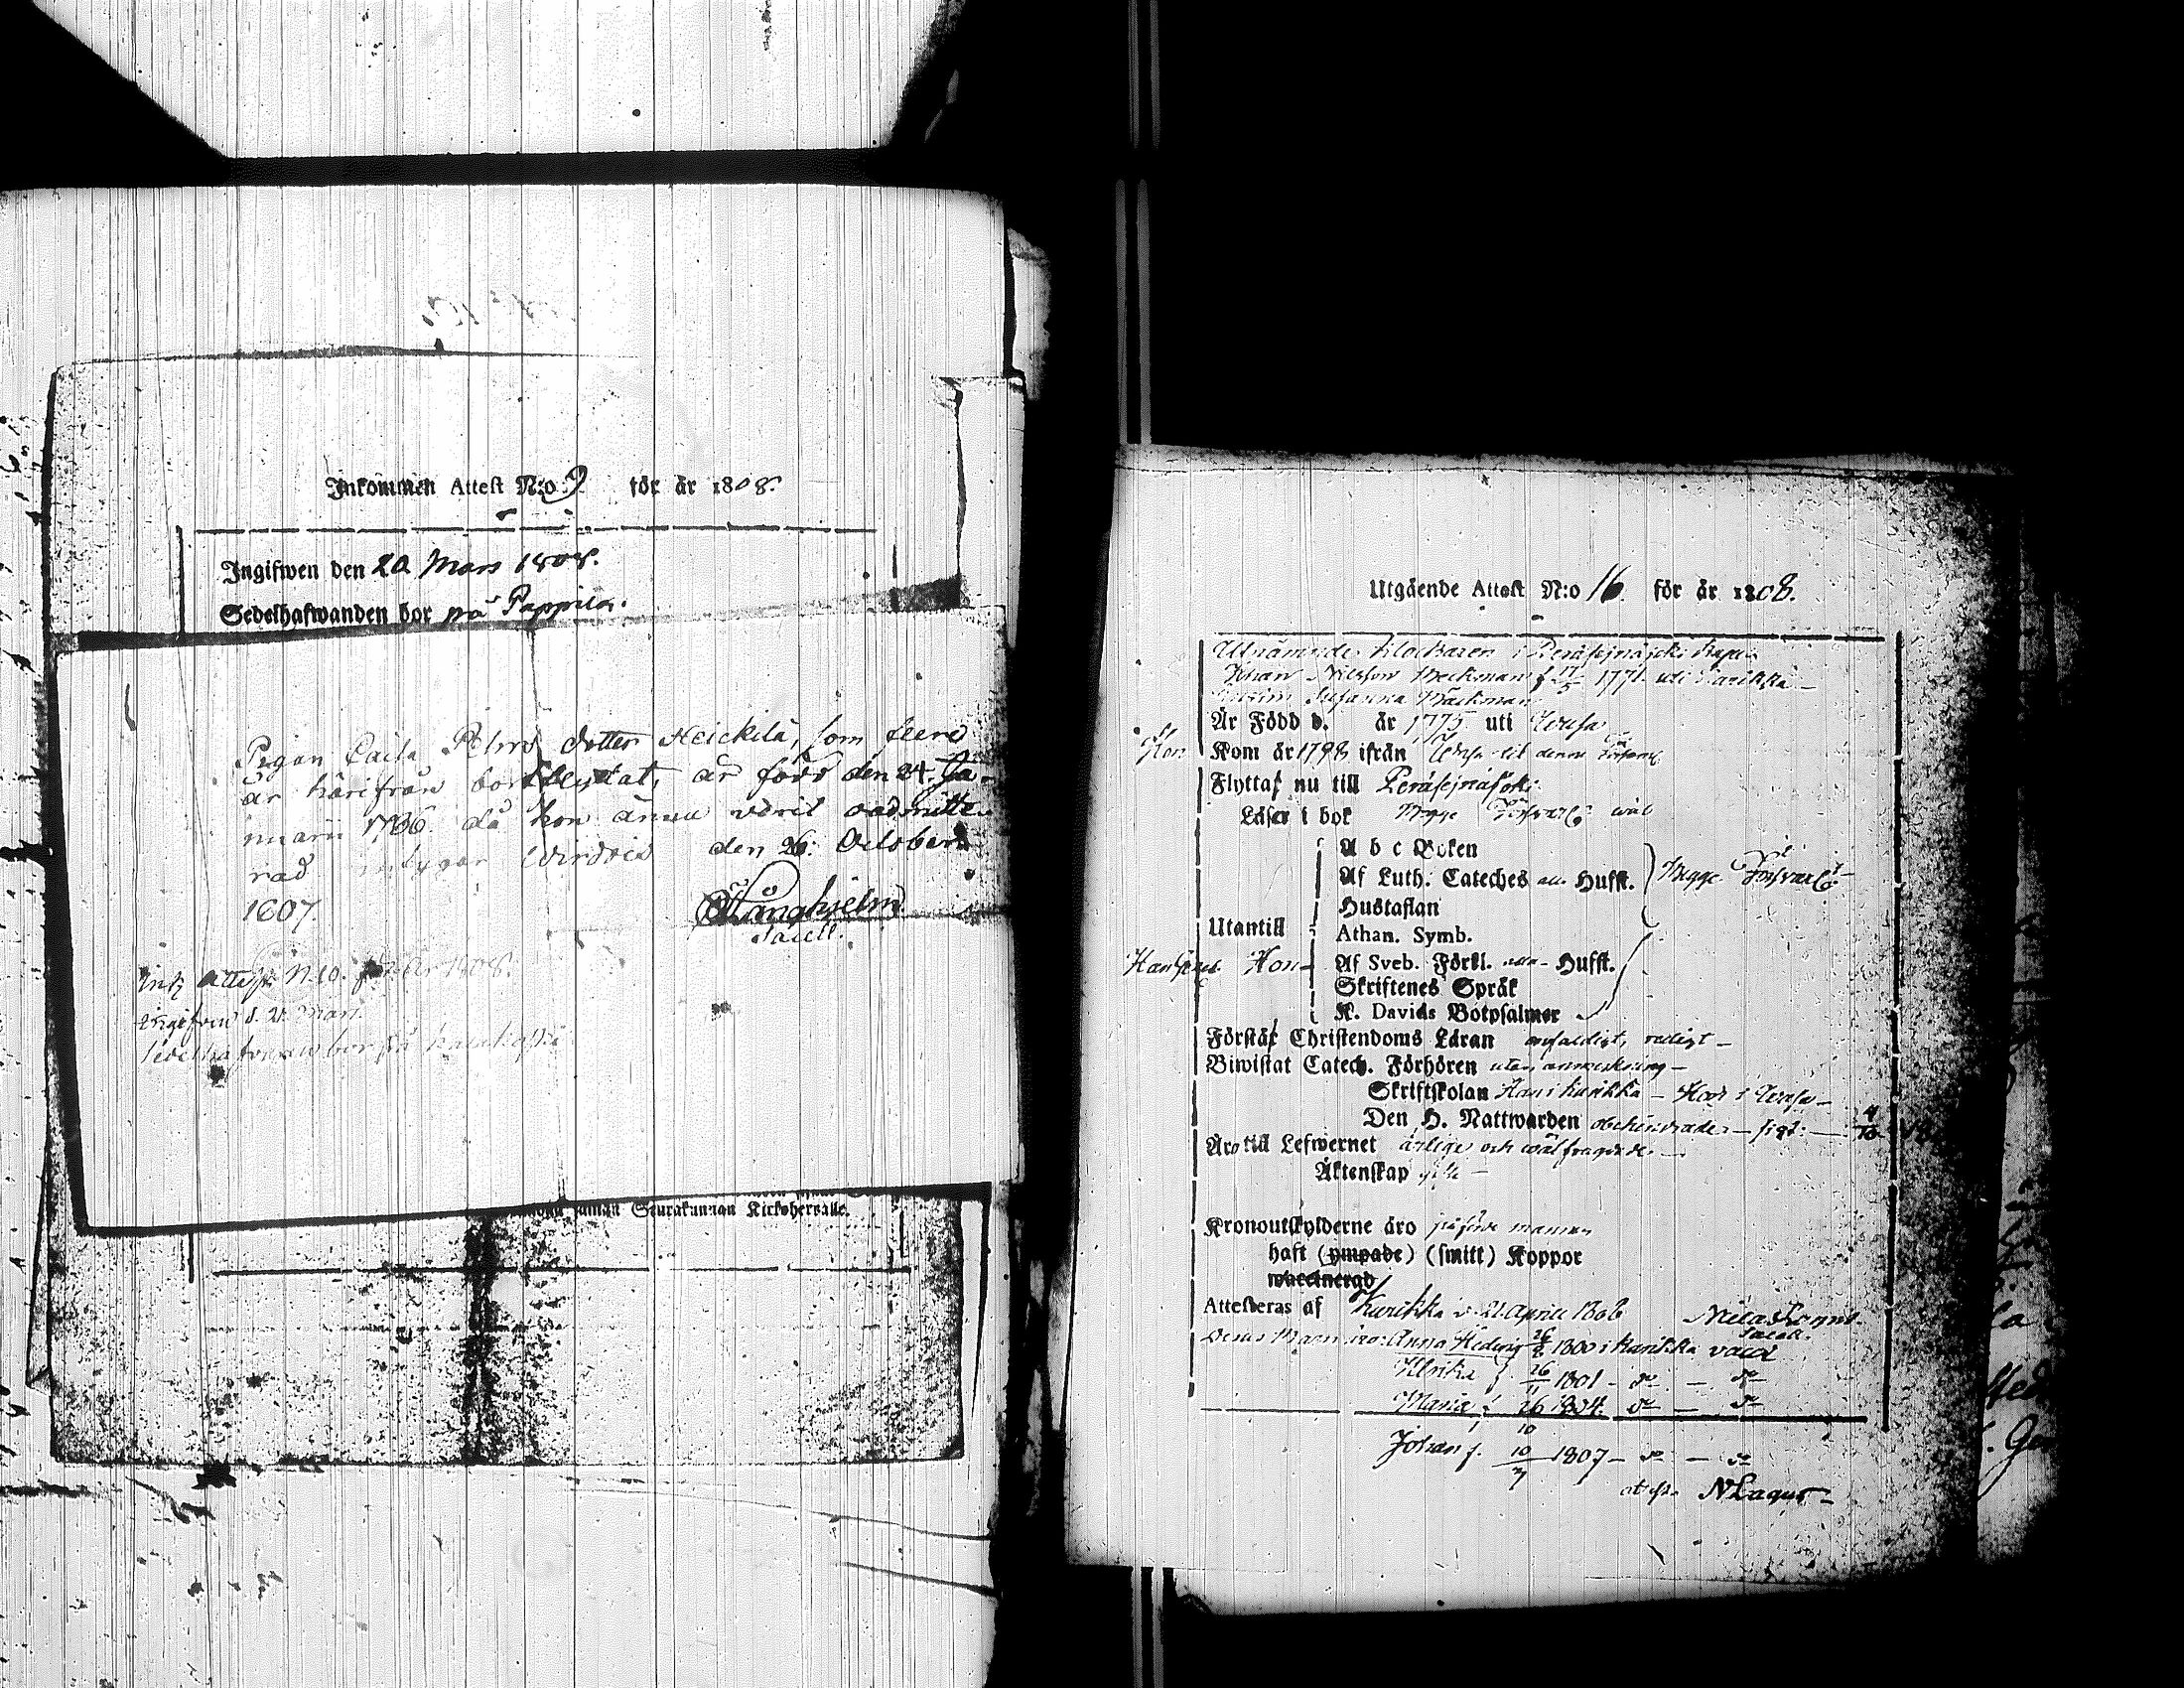 Inkommen Attest N:o 9 för år 1808.
Ingifwen den 20 Mars 1808.
Sedelhafwanden bor på Pappila.
Pigan Caisa Petersdotter Heickilä, som flere
år härifrån bortflyttat, är född den 24. Ja-
nuarii 1786 då hon ännu varit oadmitte-
rad intygar Wirdois den 26. October
1807. Långhjelm
Sacell.
Ink. Attest N. 10. för År 1808.
Ingifven d. 21 Mars.
Sedelhafvanden bor på
saman Seurakunnan Kirkoherralle.
Utgående Attest N:o 16 för år 1808.
Utnämnde Klockaren i Peräsejnäjoki Capel
Johan Nilsson Backman f. 17/5 1771. uti Kurikka -
Hustrun Susanna Backman
Är Född d. år 1775 uti Wasa
Hon Kom år 1798 ifrån Wasa til denna
Flyttar nu till Peräsejnäjoki
Läser i bok Begge Försvarl. wäl
A b c Boken
Af Luth. Cateches Hufst. Begge Försvarl.
Hustaflan
Utantill Athan. Symb.
Hon - Af Sveb. Förkl. Hufst.
Skriftenes Språk
K. Davids Botpsalmer
Förstår Christendoms Läran enfaldigt, redligt -
Biwistat Catech. Förhören utan anmerkning -
Skriftskolan Han i Kurikka - Hon i Wasa -
Den H. Nattwarden obehindrade - sist - 4/10
Äro till Lefwernet ärlige och wälfrägdade -
Äktenskap gifte -
Kronoutskylderne äro påförde mannen
haft (ympade) (smitt) Koppor
waccinerad
Attesteras af Kurikka d. 21 Aprill 1808
Sacell.
Deras Barn äro: Anna Hedvig 26/8 1800 i Kurikka vacc
Ulrika f. 26/11 1801 - do - do
Maria f. 26/10 1804. do - do
Johan f. 10/7 1807 - do - do
attest. N Lagus -